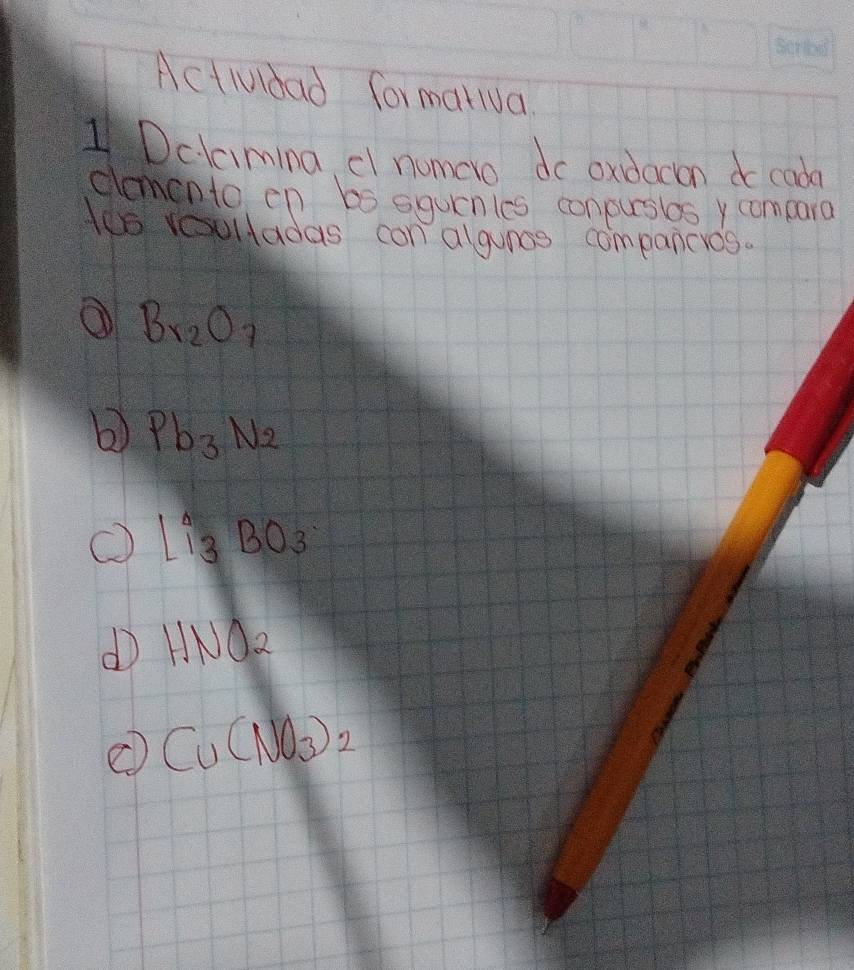 Scribe
Actividad formativa.
1 Determina el numero de oxidacion de cada
elemento en los siguientes conpuestos y compara
tus resultadas con algunos compañeros.
a) Br₂O₇
b) Pb₃N₂
c) Li₃BO₃
d) HNO₂
e) Cu(NO₃)₂